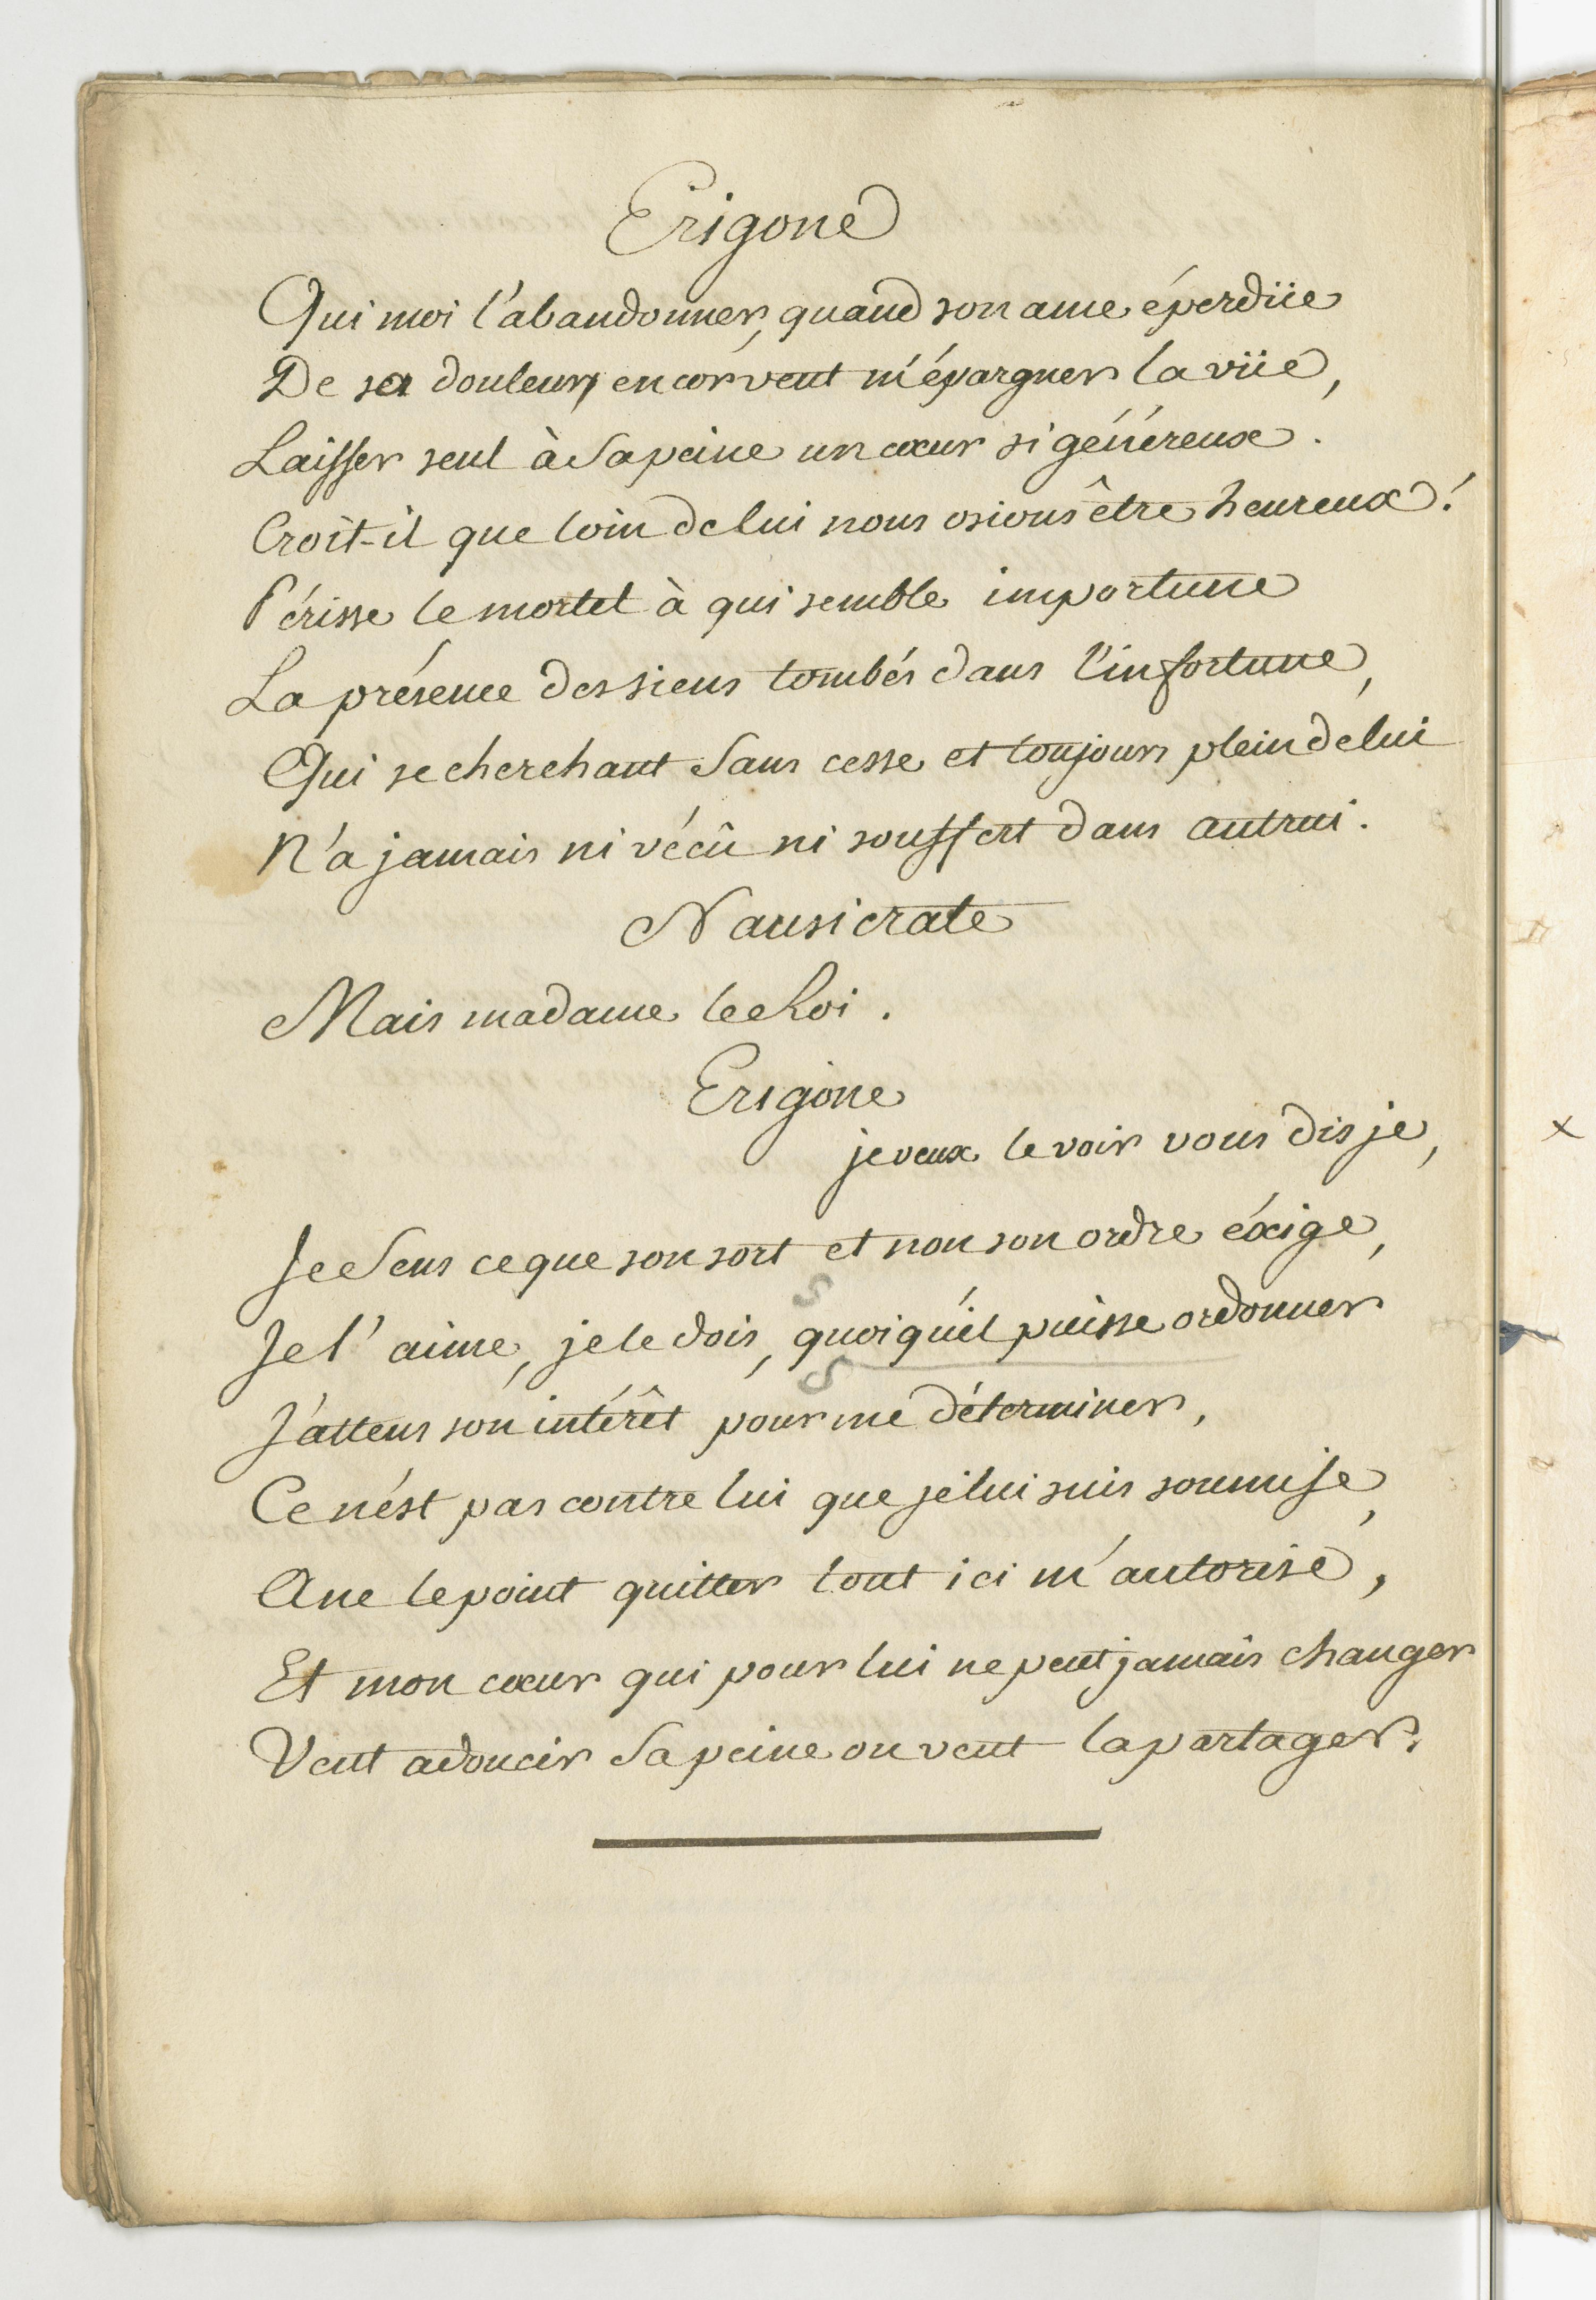 Erigone
Qui moi l'abandonner, quand son ame éperdüe
De sa douleur encor veut m'épargner la vüe,
Laisser seul à sa peine un cœur si généreux.
Croit-il que loin de lui nous osions être heureux!
Périsse le mortel à qui semble importune
La présence des siens tombés dans l'infortune,
Qui se cherchant sans cesse et toujours plein de lui
N'a jamais ni vécû ni souffert dans autrui.
Nausicrate
Mais madame le Roi.
Erigone
je veux le voir vous dis je,
Je sens ce que son sort et non son ordre éxige,
Je l'aime, je le dois, quoiqu'il puisse ordonner
J'attens son intérêt pour me déterminer,
Ce n'ést pas contre lui que je lui suis soumise,
A ne le point quitter tout ici m'autorise,
Et mon cœur qui pour lui ne peut jamais changer
Veut adoucir sa peine ou veut la partager.